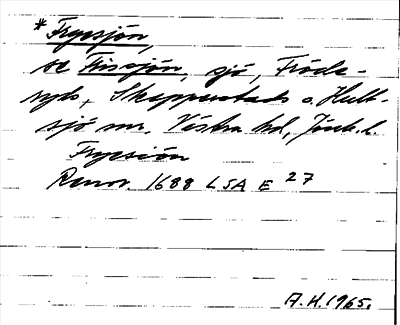 *Frysjön,
se Frissjön, sjö, Fröde-
ryds, Skepperstads o. Hult-
sjö snr. Västra hd, Jönk. l.
Frysiön
Renov. 1688 LSA E 27
A.H. 1965.